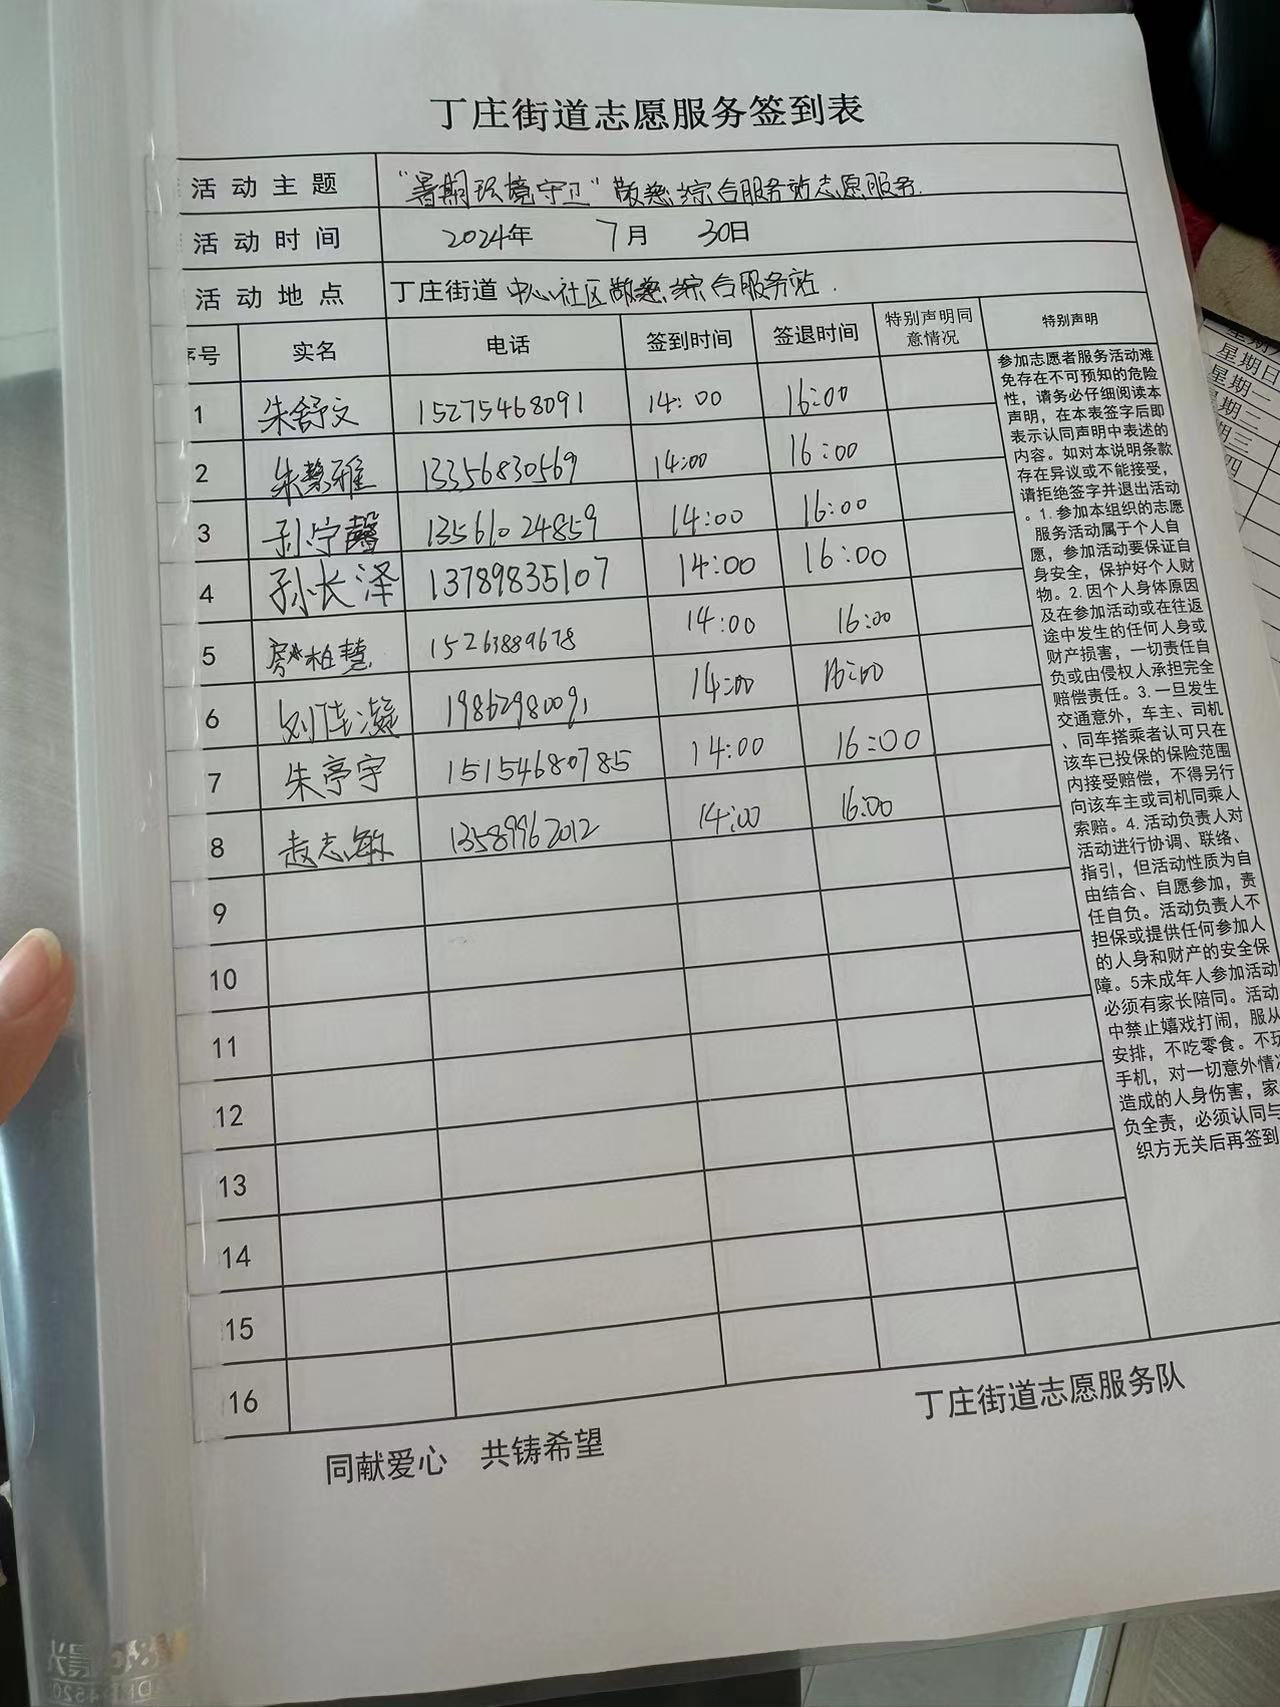 丁庄街道志愿服务签到表
活动主题 “暑期环境守卫”散葱综合服务站志愿服务.
活动时间 2024年 7月 30日
活动地点 丁庄街道 中心社区散葱综合服务站.
序号 实名 电话 签到时间 签退时间 特别声明同意情况 特别声明
1 朱舒文 15275468091 14:00 16:00
2 朱慧雅 13356830569 14:00 16:00
3 孙宁馨 13561024859 14:00 16:00
4 孙长泽 13789835107 14:00 16:00
5 柏慧 15263889678 14:00 16:00
6 刘佳凝 19862980091 14:00 16:00
7 朱亭宇 15154680785 14:00 16:00
8 赵志敏 13589962012 14:00 16:00
9
10
11
12
13
14
15
16
参加志愿者服务活动难
免存在不可预知的危险
性，请务必仔细阅读本
声明，在本表签字后即
表示认同声明中表述的
内容。如对本说明条款
存在异议或不能接受，
请拒绝签字并退出活动
。1.参加本组织的志愿
服务活动属于个人自
愿，参加活动要保证自
身安全，保护好个人财
物。2.因个人身体原因
及在参加活动或在往返
途中发生的任何人身或
财产损害，一切责任自
负或由侵权人承担完全
赔偿责任。3.一旦发生
交通意外，车主、司机
、同车搭乘者认可只在
该车已投保的保险范围
内接受赔偿，不得另行
向该车主或司机同乘人
索赔。4.活动负责人对
活动进行协调、联络、
指引，但活动性质为自
由结合、自愿参加，责
任自负。活动负责人不
担保或提供任何参加人
的人身和财产的安全保
障。5未成年人参加活动
必须有家长陪同。活动
中禁止嬉戏打闹，服从
安排，不吃零食。不玩
手机，对一切意外情况
造成的人身伤害，家
负全责，必须认同与
织方无关后再签到
丁庄街道志愿服务队
同献爱心 共铸希望
星期日
星期一
星期二
期三
四